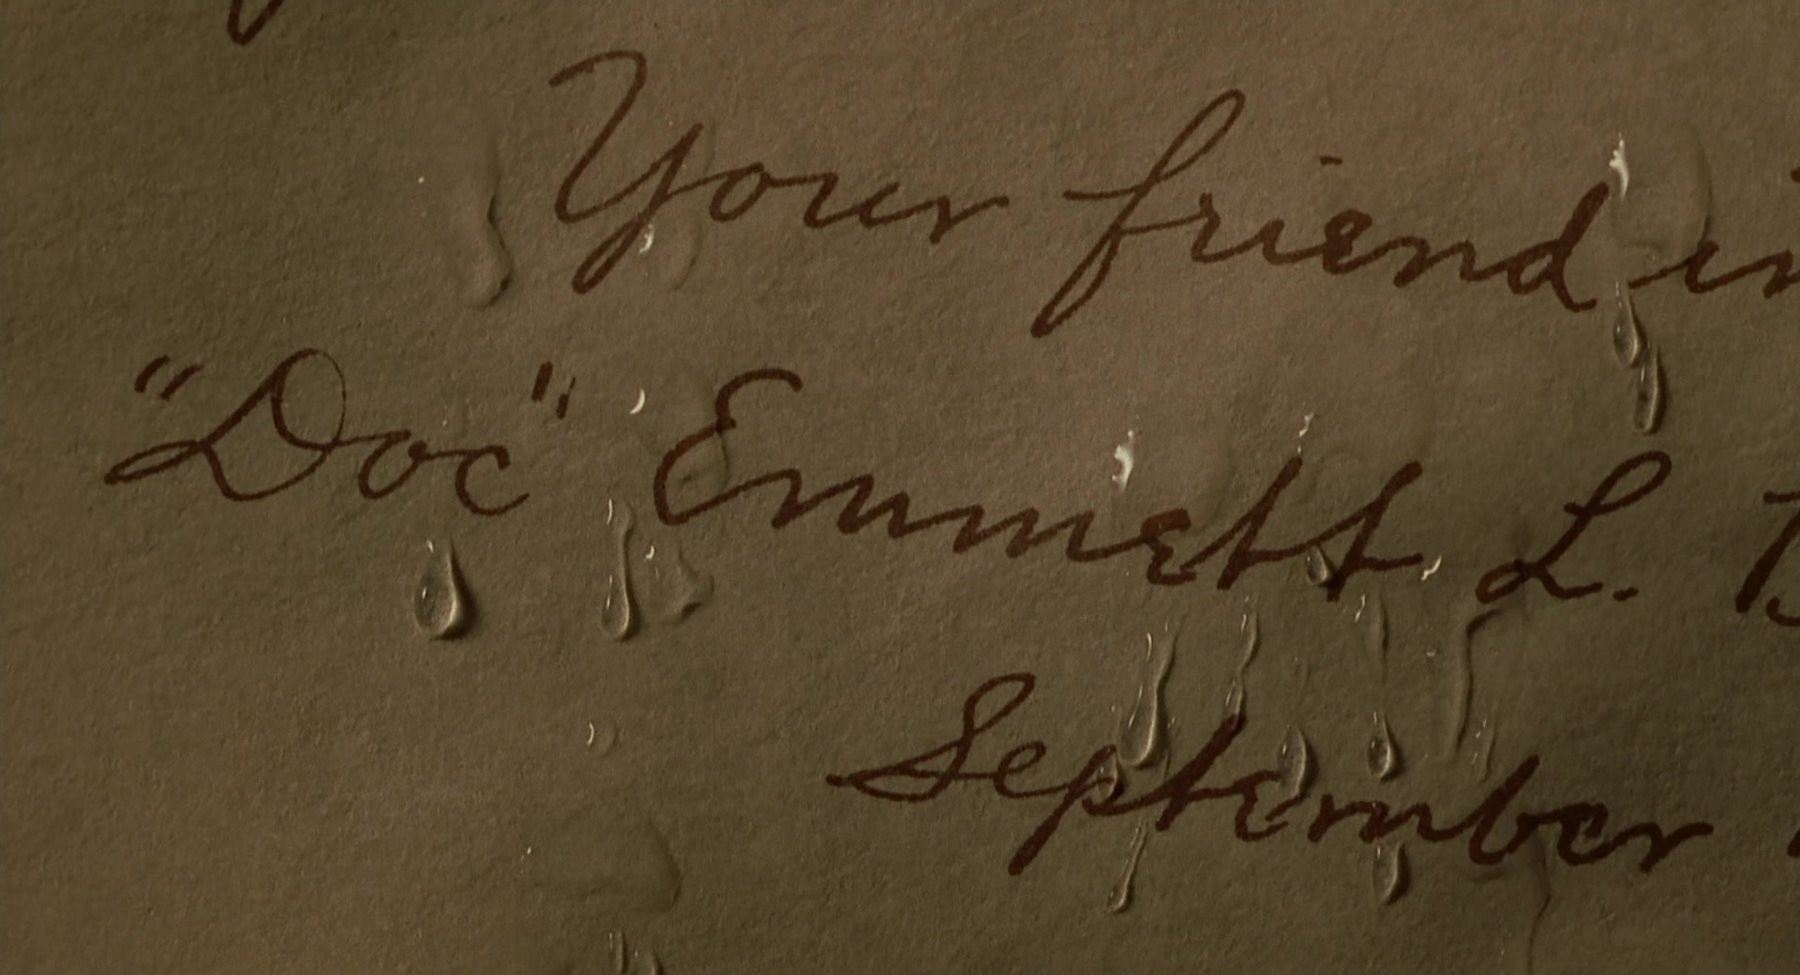 Your friend in
"Doc" Emmett L. B
September